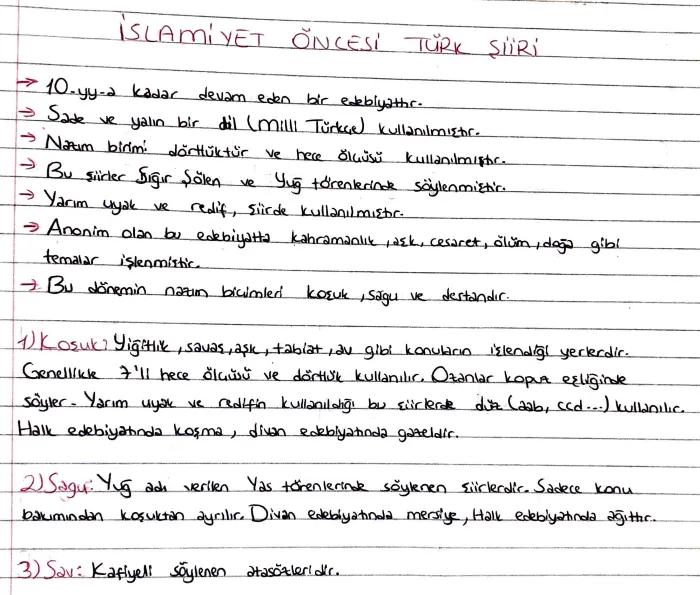 İSLAMİYET ÖNCESİ TÜRK ŞİİRİ
→ 10.yy-a kadar devam eden bir edebiyattır.
→ Sade ve yalın bir dil (Milli Türkçe) kullanılmıştır.
→ Nazım birimi dörtlüktür ve hece ölçüsü kullanılmıştır.
→ Bu şiirler Sığır Şölen ve Yuğ törenlerinde söylenmiştir.
→ Yarım uyak ve redif, şiirde kullanılmıştır.
→ Anonim olan bu edebiyatta kahramanlık, aşk, cesaret, ölüm, doğa gibi
temalar işlenmiştir.
→ Bu dönemin nazım biçimleri koşuk, sagu ve destandır.
1) Koşuk: Yiğitlik, savaş, aşk, tabiat, av gibi konuların işlendiği yerlerdir.
Genellikle 7'li hece ölçüsü ve dörtlük kullanılır. Ozanlar kopuz eşliğinde
söyler. Yarım uyak ve redifin kullanıldığı bu şiirlerde düz (aab, ccd...) kullanılır.
Halk edebiyatında koşma, divan edebiyatında gazeldir.
2) Sagu: Yuğ adı verilen Yas törenlerinde söylenen şiirlerdir. Sadece konu
bakımından koşuktan ayrılır. Divan edebiyatında mersiye, Halk edebiyatında ağıttır.
3) Sav: Kafiyeli söylenen atasözleridir.